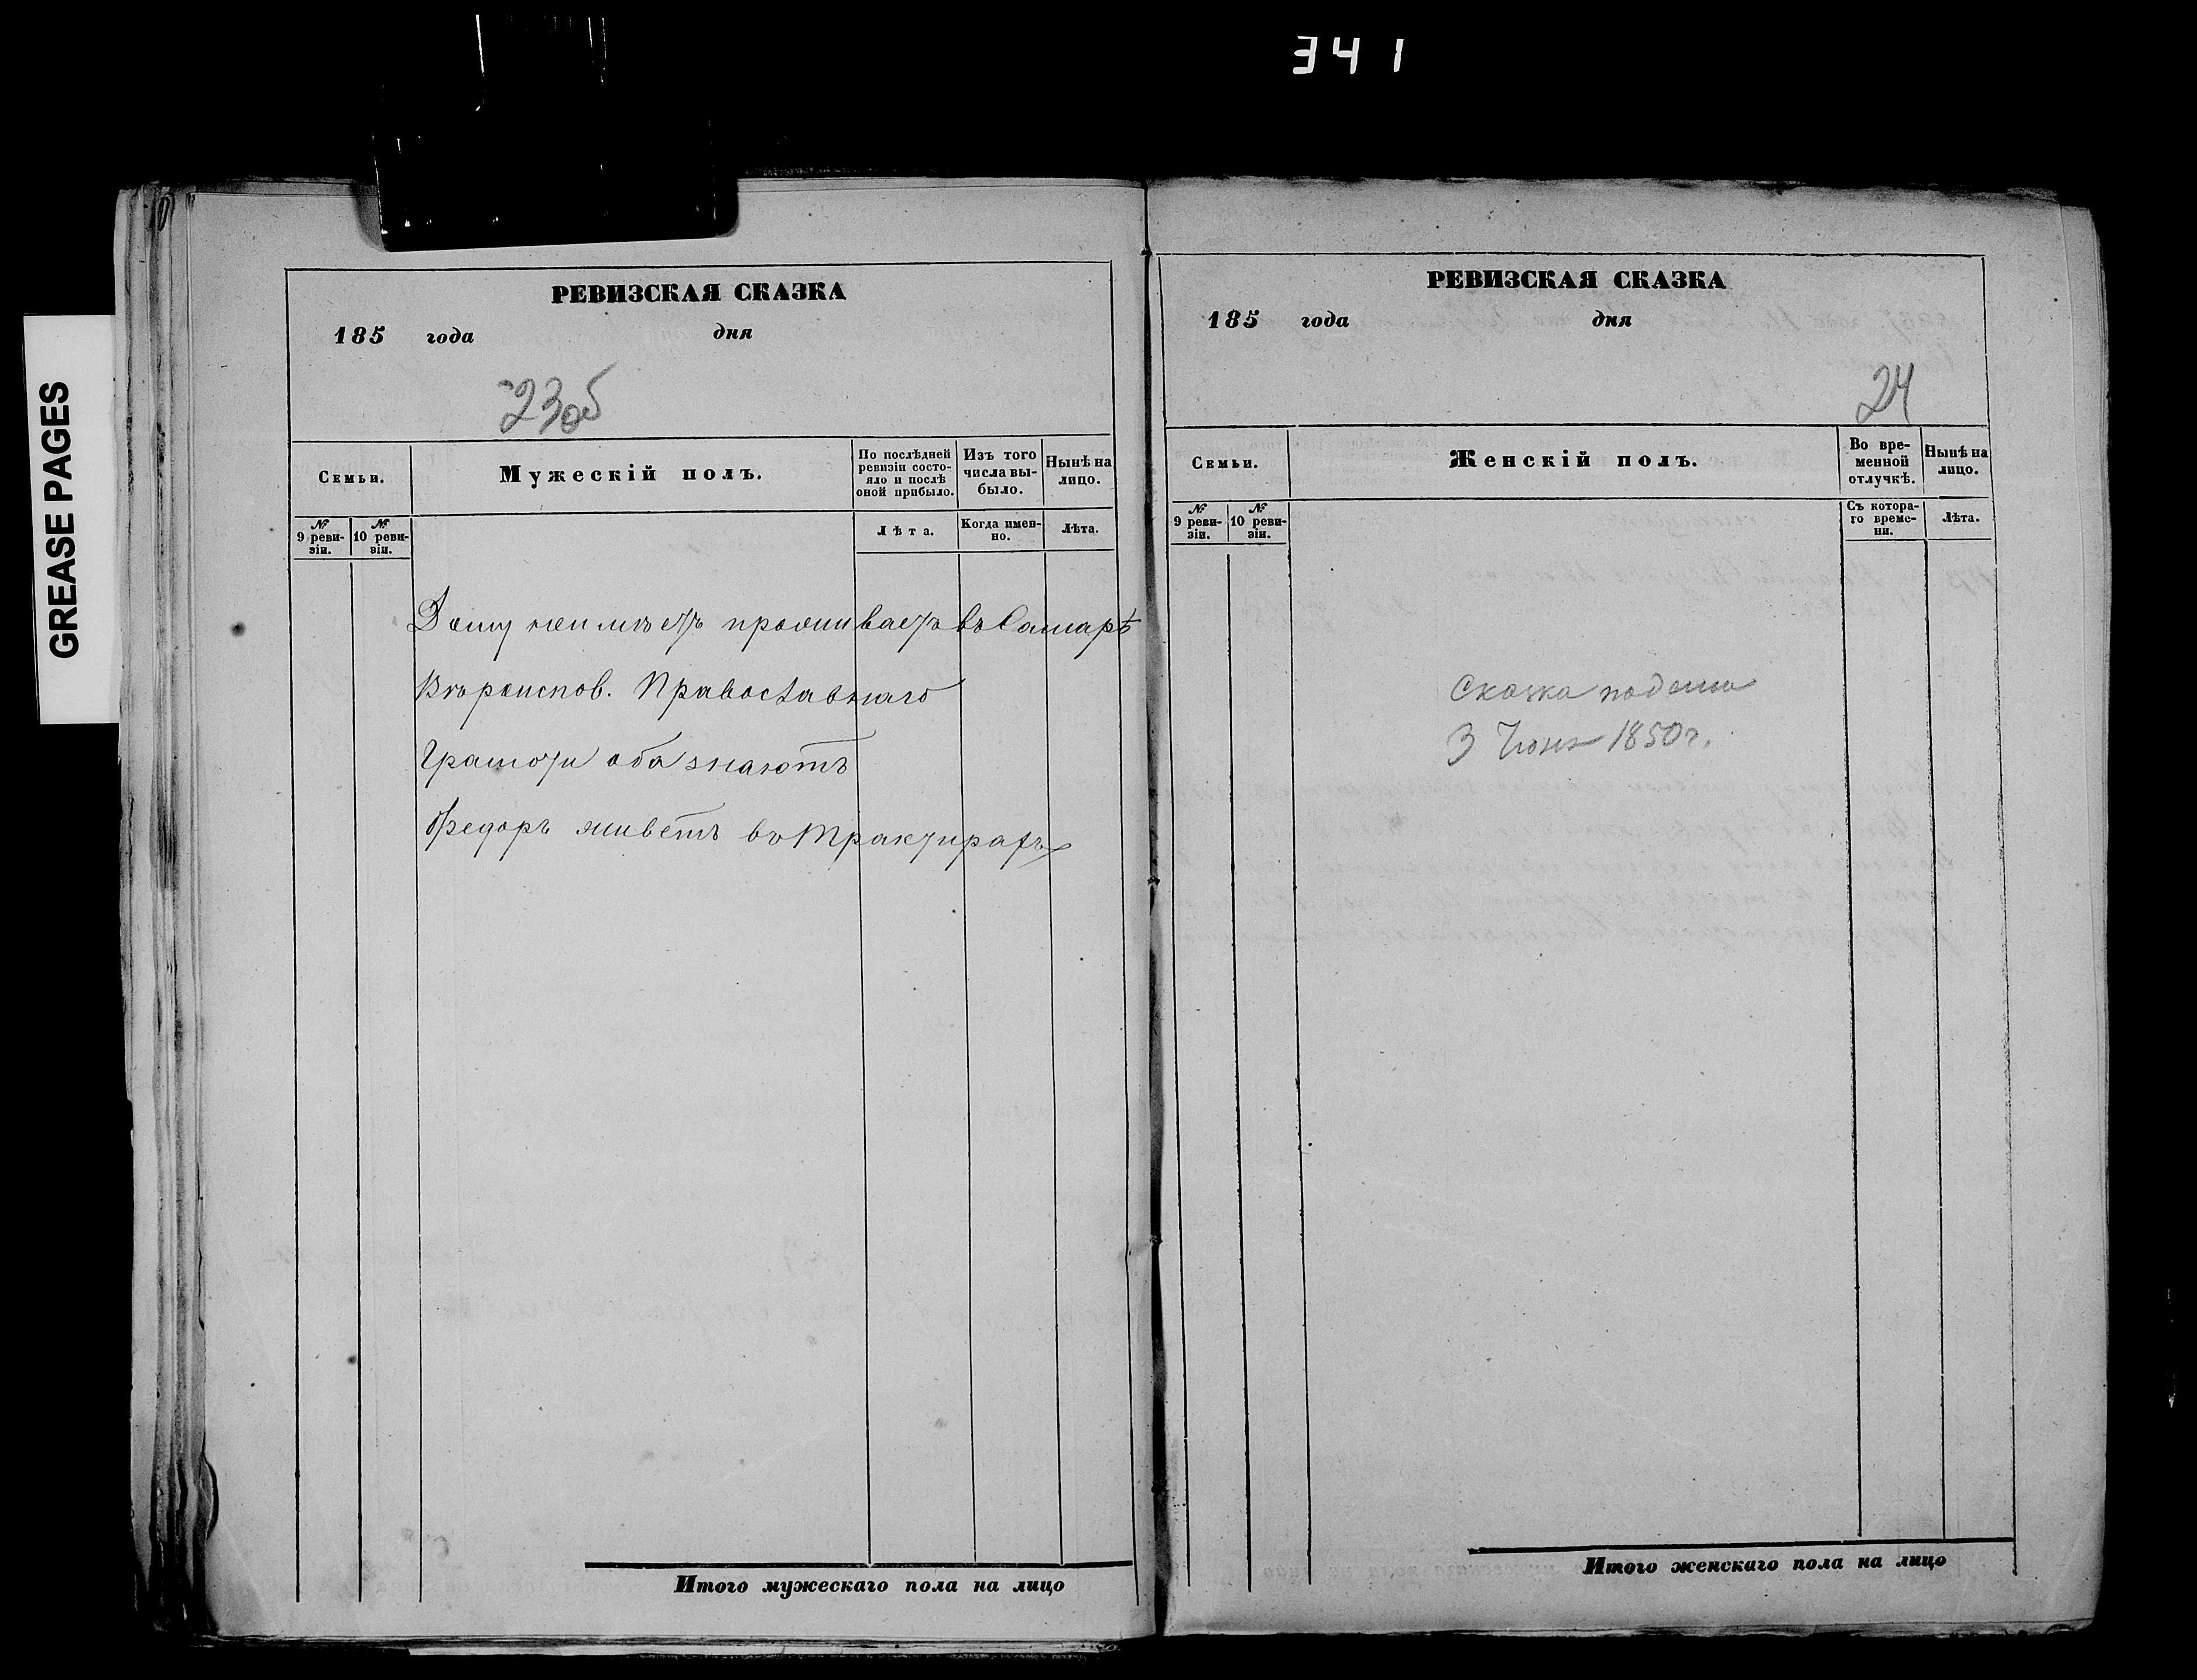 341
GREASE PAGES
РЕВИЗСКАЯ СКАЗКА
185 года дня
23об
Семьи.
Мужескій полъ.
По послѣдней ревизіи состояло и послѣ оной прибыло.
Изъ того числа выбыло.
Нынѣ на лицо.
№ 9 ревизіи.
№ 10 ревизіи.
Лѣта.
Когда именно.
Лѣта.
Дому неимѣетъ проживаетъ въ Самарѣ
Вѣроиспов. Православнаго
Грамоти оба знаютъ
Федоръ живетъ въ трактирахъ
Итого мужескаго пола на лицо
РЕВИЗСКАЯ СКАЗКА
185 года дня
24
Семьи.
Женскій полъ.
Во временной отлучкѣ.
Нынѣ на лицо.
№ 9 ревизіи.
№ 10 ревизіи.
Съ котораго времени.
Лѣта.
Сказка подана
3 Июня 1850г.
Итого женскаго пола на лицо